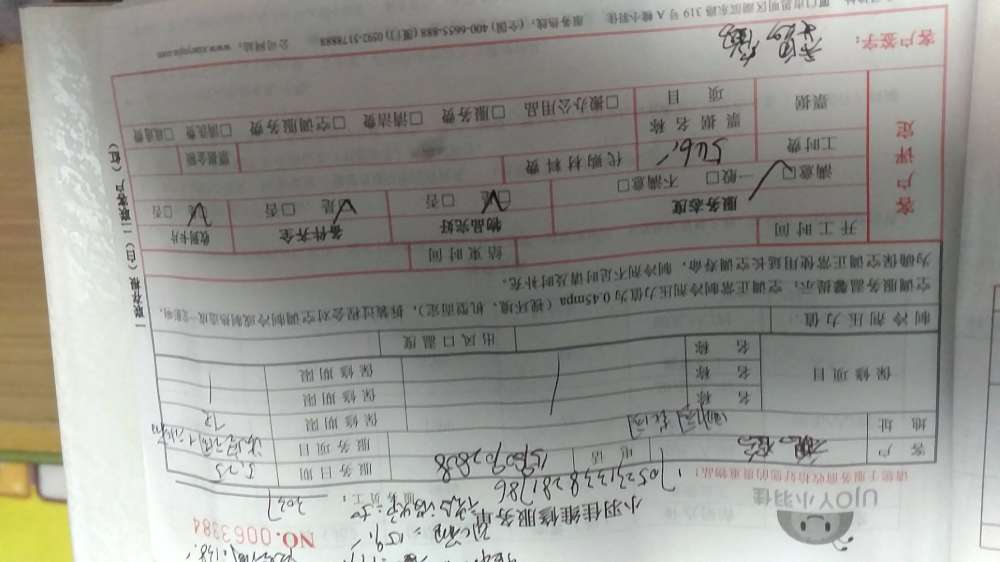 UJOY小羽佳
小羽佳维修服务单
NO.0063384
请您于服务前收拾好您的贵重物品!
服务员工: 3037
客户 电话 服务日期 5.25
地址 服务项目
保修项目 名称 保修期限 12
名称 保修期限
名称 保修期限
制冷剂压力值: 出风口温度
空调服务温馨提示:空调正常制冷剂压力值为0.45mpa(视环境、机型而定),拆装过程会对空调制冷或制热造成一定影响,
为确保空调正常使用延长空调寿命,制冷剂不足时请及时补充。
开工时间 结束时间
客户评定 服务态度 物品完好 备件齐全 收到卡片
满意□ 一般□ 不满意□ □是 □否 □是 □否 □是 □否
工时费 546.- 代购材料费 票据金额
票据 票据名称
项目 □搬办公用品 □服务费 □清洁费 □空调服务费 □清洗费 □疏通费
客户签字:
厦门市思明区湖滨东路319号A幢小羽佳 服务热线:(全国)400-6655-888 (厦门)0592-5178888 公司网站:www.xiaoyujia.com
一联存根(白)二联客户(红)